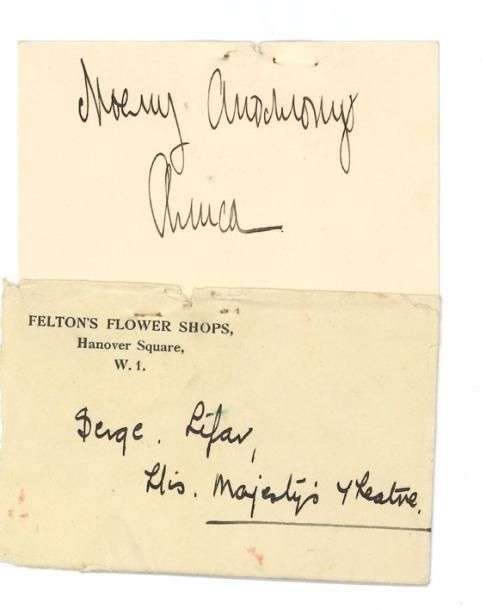 Моему Аполлону
Алиса
FELTON'S FLOWER SHOPS,
Hanover Square,
W.1.
Serge. Lifar,
His. Majesty's Theatre.